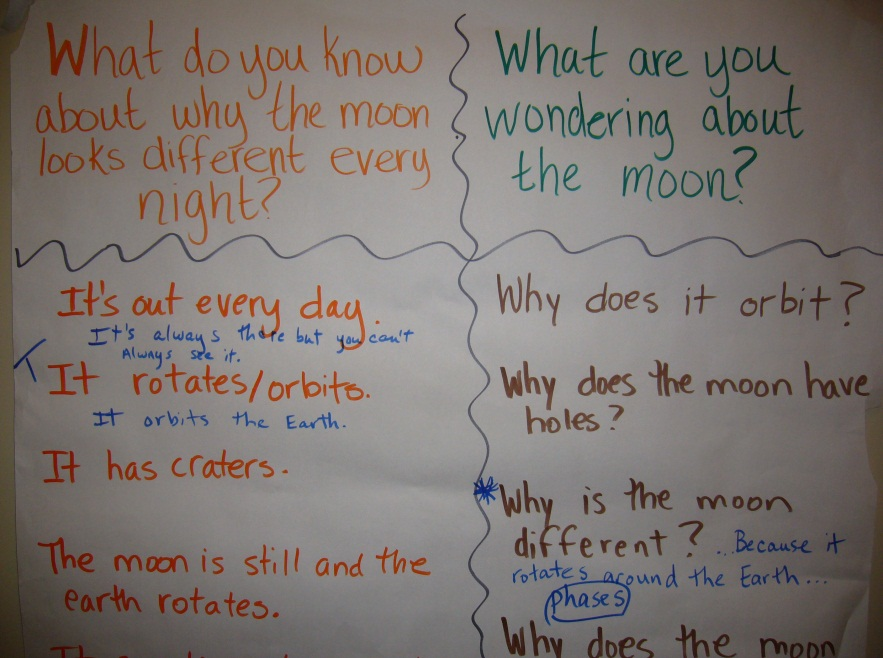 What do you know
about why the moon
looks different every
night?
It's out every day.
It's always there but you can't
Always see it.
It rotates/orbits.
It orbits the Earth.
It has craters.
The moon is still and the
earth rotates.
What are you
wondering about
the moon?
Why does it orbit?
Why does the moon have
holes?
Why is the moon
different? ...Because it
rotates around the Earth...
phases
Why does the moon